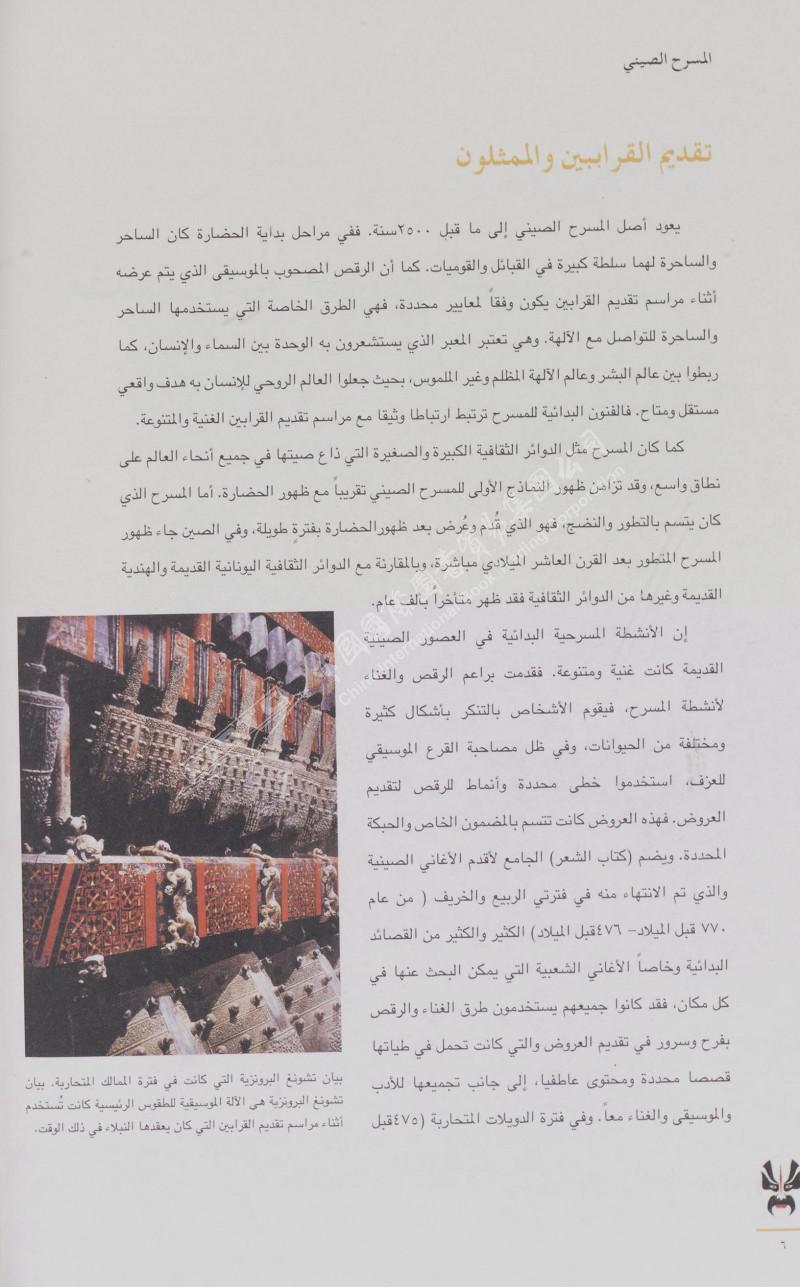 المسرح الصيني
تقديم القرابين والممثلون
يعود أصل المسرح الصيني إلى ما قبل ٢٥٠٠سنة. ففي مراحل بداية الحضارة كان الساحر
والساحرة لهما سلطة كبيرة في القبائل والقوميات. كما أن الرقص المصحوب بالموسيقى الذي يتم عرضه
أثناء مراسم تقديم القرابين يكون وفقاً لمعايير محددة، فهي الطرق الخاصة التي يستخدمها الساحر
والساحرة للتواصل مع الآلهة. وهي تعتبر المعبر الذي يستشعرون به الوحدة بين السماء والإنسان، كما
ربطوا بين عالم البشر وعالم الآلهة المظلم وغير الملموس، بحيث جعلوا العالم الروحي للإنسان به هدف واقعي
مستقل ومتاح. فالفنون البدائية للمسرح ترتبط ارتباطا وثيقا مع مراسم تقديم القرابين الغنية والمتنوعة.
كما كان المسرح مثل الدوائر الثقافية الكبيرة والصغيرة التي ذاع صيتها في جميع أنحاء العالم على
نطاق واسع، وقد تزامن ظهور النماذج الأولى للمسرح الصيني تقريباً مع ظهور الحضارة. أما المسرح الذي
كان يتسم بالتطور والنضج، فهو الذي قُدم وعُرض بعد ظهورالحضارة بفترةٍ طويلة، وفي الصين جاء ظهور
المسرح المتطور بعد القرن العاشر الميلادي مباشرة، وبالمقارنة مع الدوائر الثقافية اليونانية القديمة والهندية
القديمة وغيرها من الدوائر الثقافية فقد ظهر متأخرا بألف عام.
إن الأنشطة المسرحية البدائية في العصور الصينية
القديمة كانت غنية ومتنوعة. فقدمت براعم الرقص والغناء
لأنشطة المسرح، فيقوم الأشخاص بالتنكر بأشكال كثيرة
ومختلفة من الحيوانات، وفي ظل مصاحبة القرع الموسيقي
للعزف، استخدموا خطى محددة وأنماط للرقص لتقديم
العروض. فهذه العروض كانت تتسم بالمضمون الخاص والحبكة
المحددة. ويضم (كتاب الشعر) الجامع لأقدم الأغاني الصينية
والذي تم الانتهاء منه في فترتي الربيع والخريف ( من عام
٧٧٠ قبل الميلاد- ٤٧٦قبل الميلاد) الكثير والكثير من القصائد
البدائية وخاصاً الأغاني الشعبية التي يمكن البحث عنها في
كل مكان، فقد كانوا جميعهم يستخدمون طرق الغناء والرقص
بفرح وسرور في تقديم العروض والتي كانت تحمل في طياتها
قصصا محددة ومحتوى عاطفيا، إلى جانب تجميعها للأدب
والموسيقى والغناء معاً. وفي فترة الدويلات المتحاربة (٤٧٥قبل
بيان تشونغ البرونزية التي كانت في فترة الممالك المتحاربة. بيان
تشونغ البرونزية هي الآلة الموسيقية للطقوس الرئيسية كانت تُستخدم
أثناء مراسم تقديم القرابين التي كان يعقدها النبلاء في ذلك الوقت.
٦